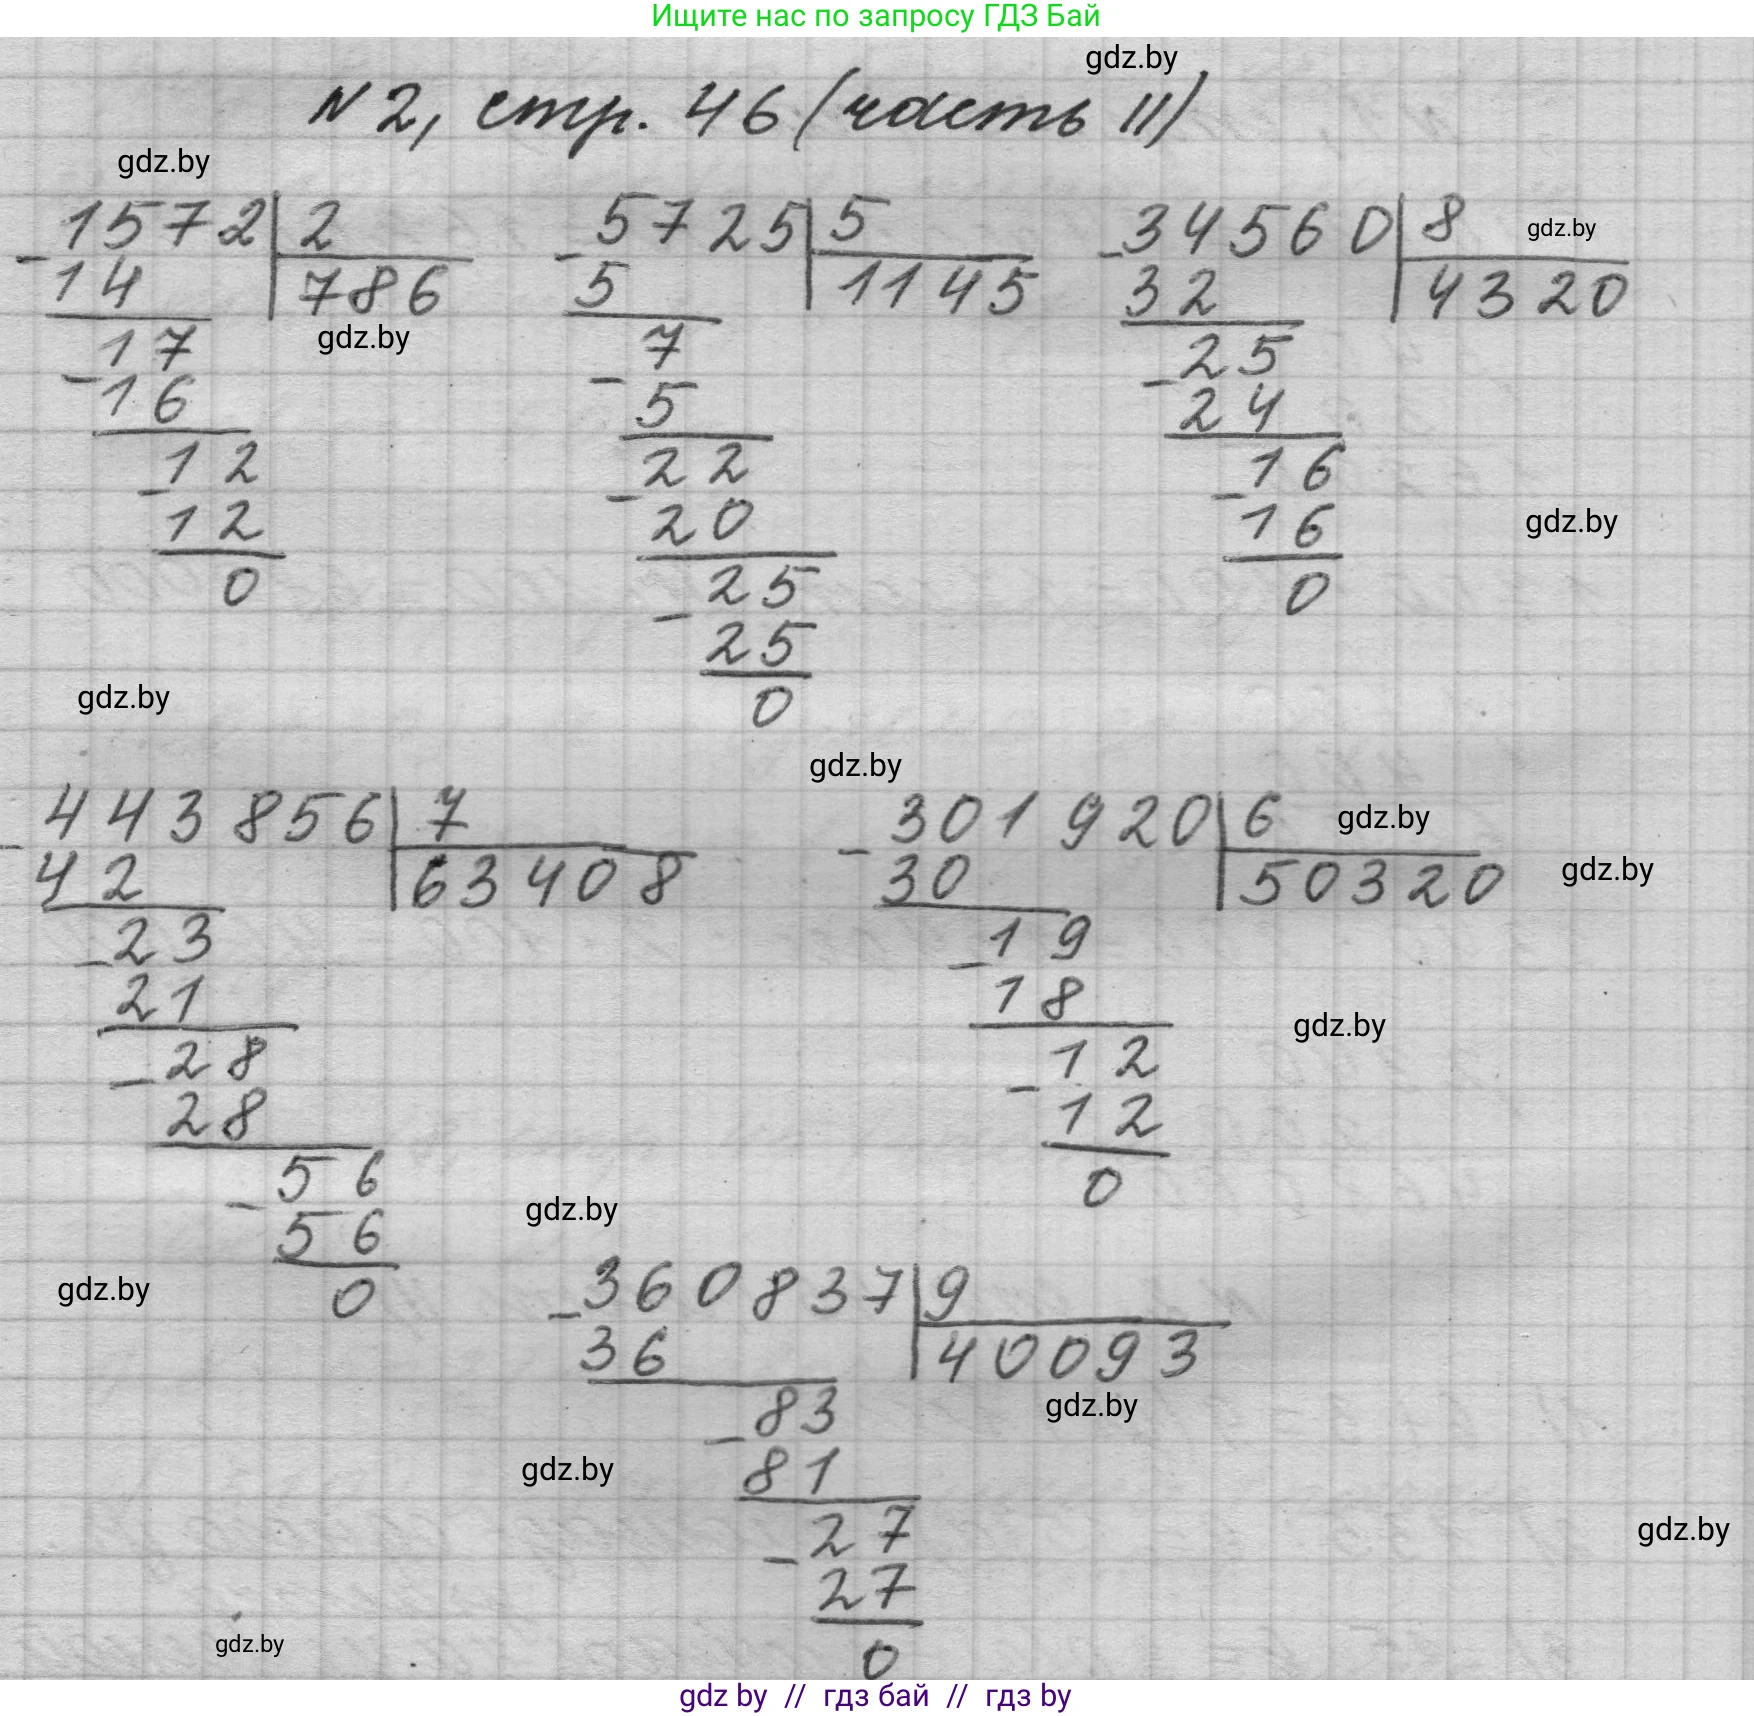 Ищите нас по запросу ГДЗ Бай
gdz.by
N 2, стр. 46 (часть II)
gdz.by
1572 2
- 14 786
17
- 16
12
- 12
0
gdz.by
5725 5
- 5 1145
7
- 5
22
- 20
25
- 25
0
34560 8
gdz.by
- 32 4320
25
- 24
16
- 16
0
gdz.by
gdz.by
gdz.by
443856 7
- 42 63408
23
- 21
28
- 28
56
- 56
0
301920 6
gdz.by
- 30 50320
gdz.by
19
- 18
12
- 12
0
gdz.by
gdz.by
gdz.by
360837 9
- 36 40093
gdz.by
83
- 81
27
- 27
0
gdz.by
gdz.by
gdz.by
gdz by // гдз бай // гдз by